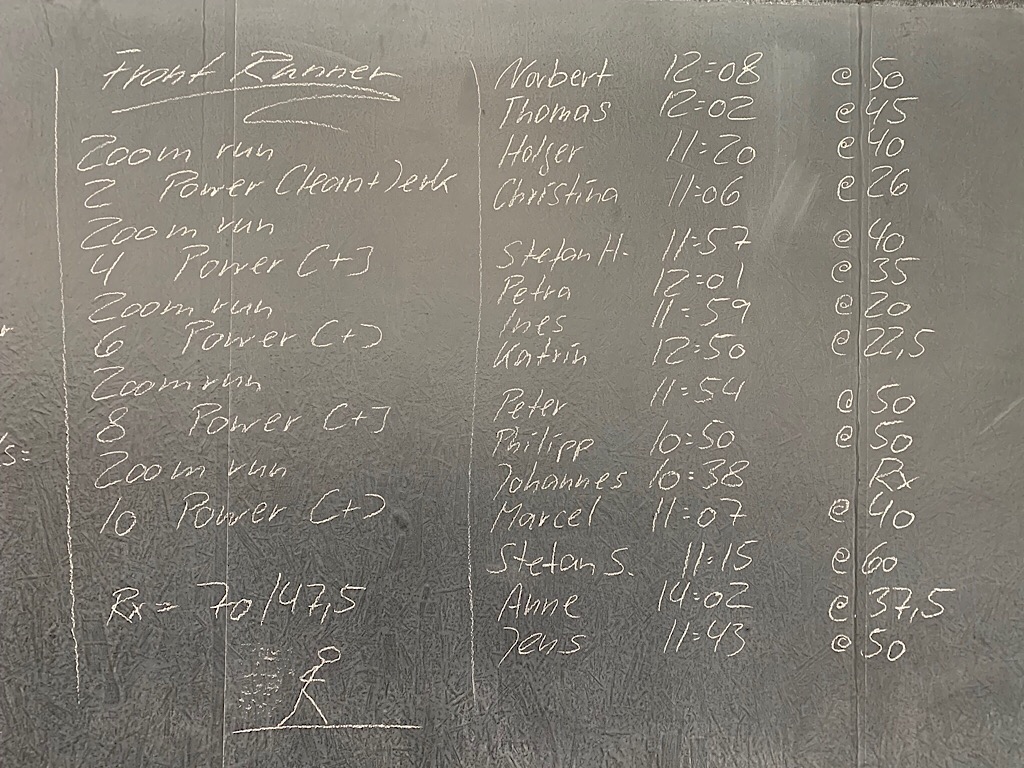 Front Runner
200m run
2 Power Clean+Jerk
200m run
4 Power C+J
200m run
6 Power C+J
200m run
8 Power C+J
200m run
10 Power C+J
Rx = 70/47,5
Norbert 12:08 @ 50
Thomas 12:02 @ 45
Holger 11:20 @ 40
Christina 11:06 @ 26
Stefan H. 11:57 @ 40
Petra 12:01 @ 35
Ines 11:59 @ 20
Katrin 12:50 @ 22,5
Peter 11:54 @ 50
Philipp 10:50 @ 50
Johannes 10:38 Rx
Marcel 11:07 @ 40
Stefan S. 11:15 @ 60
Anne 14:02 @ 37,5
Jens 11:43 @ 50